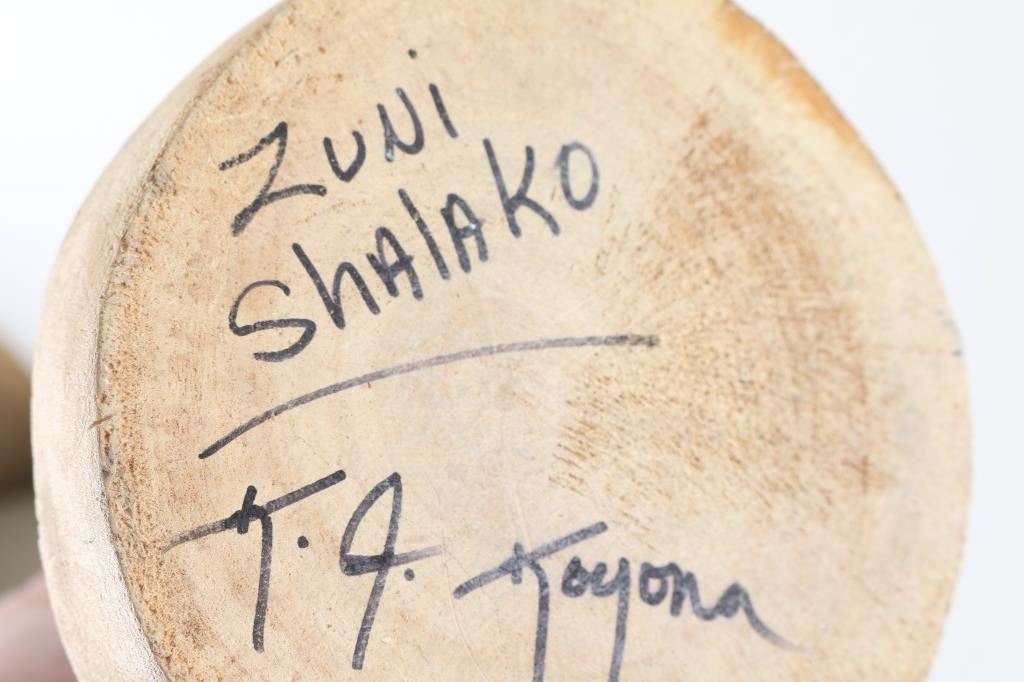 Zuni
Shalako
T. J. Koyona